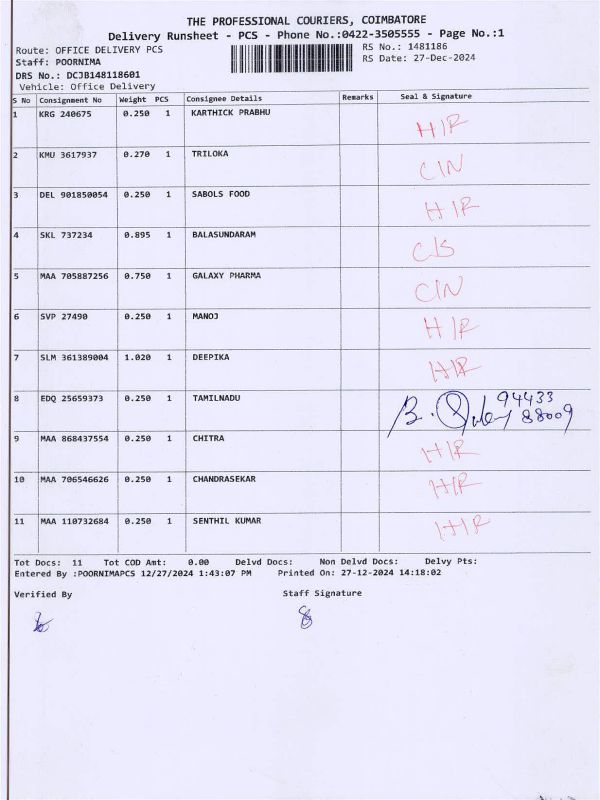 THE PROFESSIONAL COURIERS, COIMBATORE
Delivery Runsheet - PCS - Phone No.:0422-3505555 - Page No.:1
Route: OFFICE DELIVERY PCS RS No.: 1481186
Staff: POORNIMA RS Date: 27-Dec-2024
DRS No.: DCJB148118601
Vehicle: Office Delivery
S No Consignment No Weight PCS Consignee Details Remarks Seal & Signature
1 KRG 240675 0.250 1 KARTHICK PRABHU HIR
2 KMU 3617937 0.270 1 TRILOKA CIN
3 DEL 901850054 0.250 1 SABOLS FOOD HIR
4 SKL 737234 0.895 1 BALASUNDARAM
5 MAA 705887256 0.750 1 GALAXY PHARMA CIN
6 SVP 27490 0.250 1 MANOJ HIR
7 SLM 361389004 1.020 1 DEEPIKA HIR
8 EDQ 25659373 0.250 1 TAMILNADU B. 94433
88009
9 MAA 868437554 0.250 1 CHITRA HIR
10 MAA 706546626 0.250 1 CHANDRASEKAR HIR
11 MAA 110732684 0.250 1 SENTHIL KUMAR HIR
Tot Docs: 11 Tot COD Amt: 0.00 Delvd Docs: Non Delvd Docs: Delvy Pts:
Entered By :POORNIMAPCS 12/27/2024 1:43:07 PM Printed On: 27-12-2024 14:18:02
Verified By Staff Signature